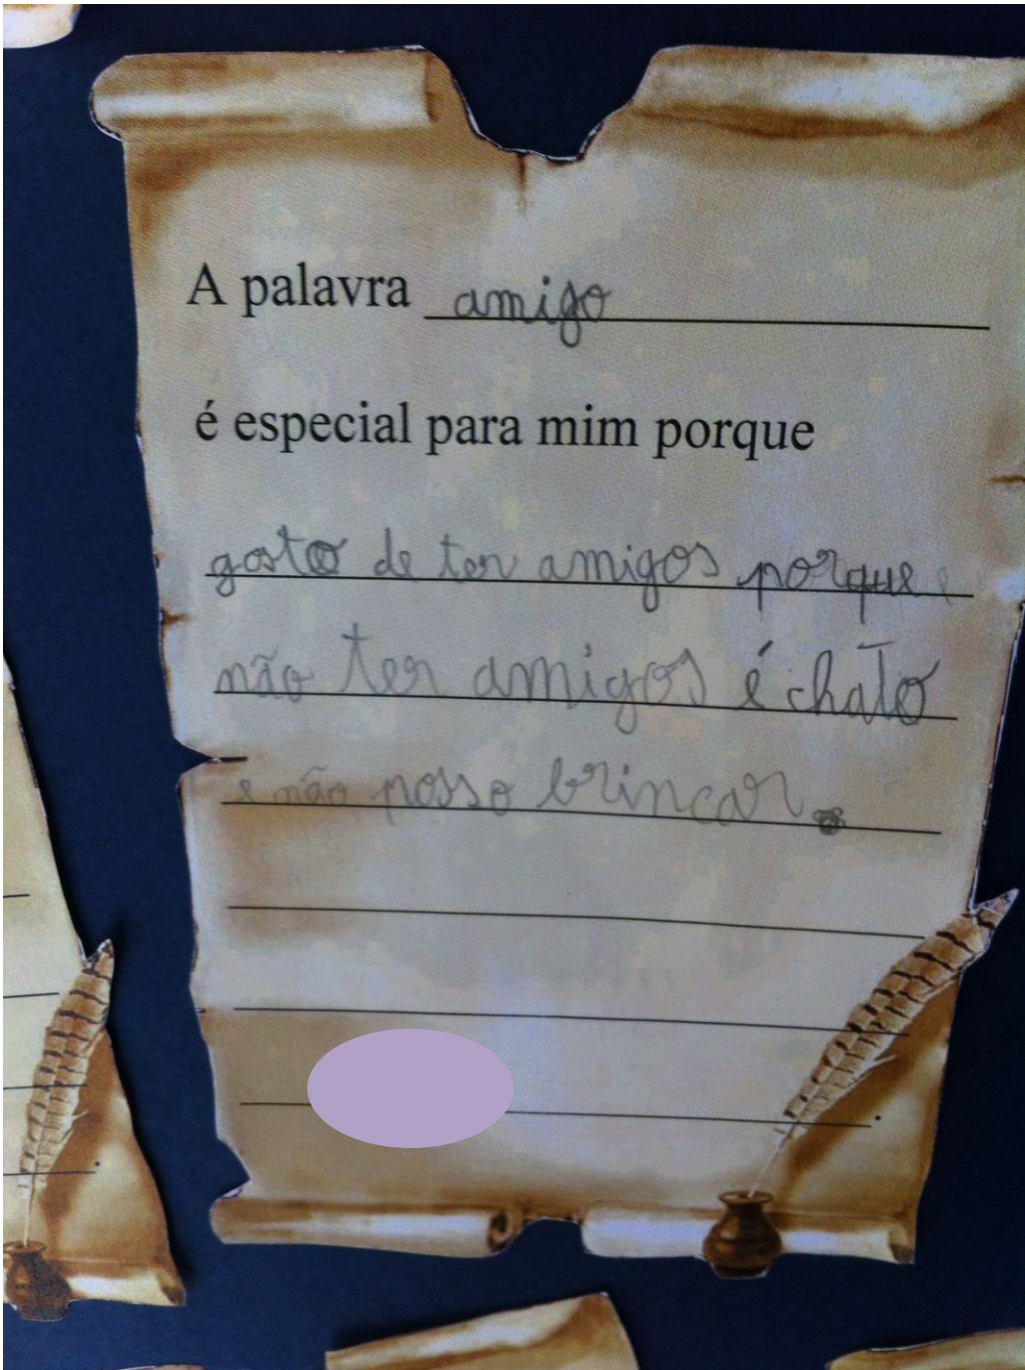 A palavra amigo
é especial para mim porque
gosto de ter amigos porque
não ter amigos é chato
e não posso brincar.
.